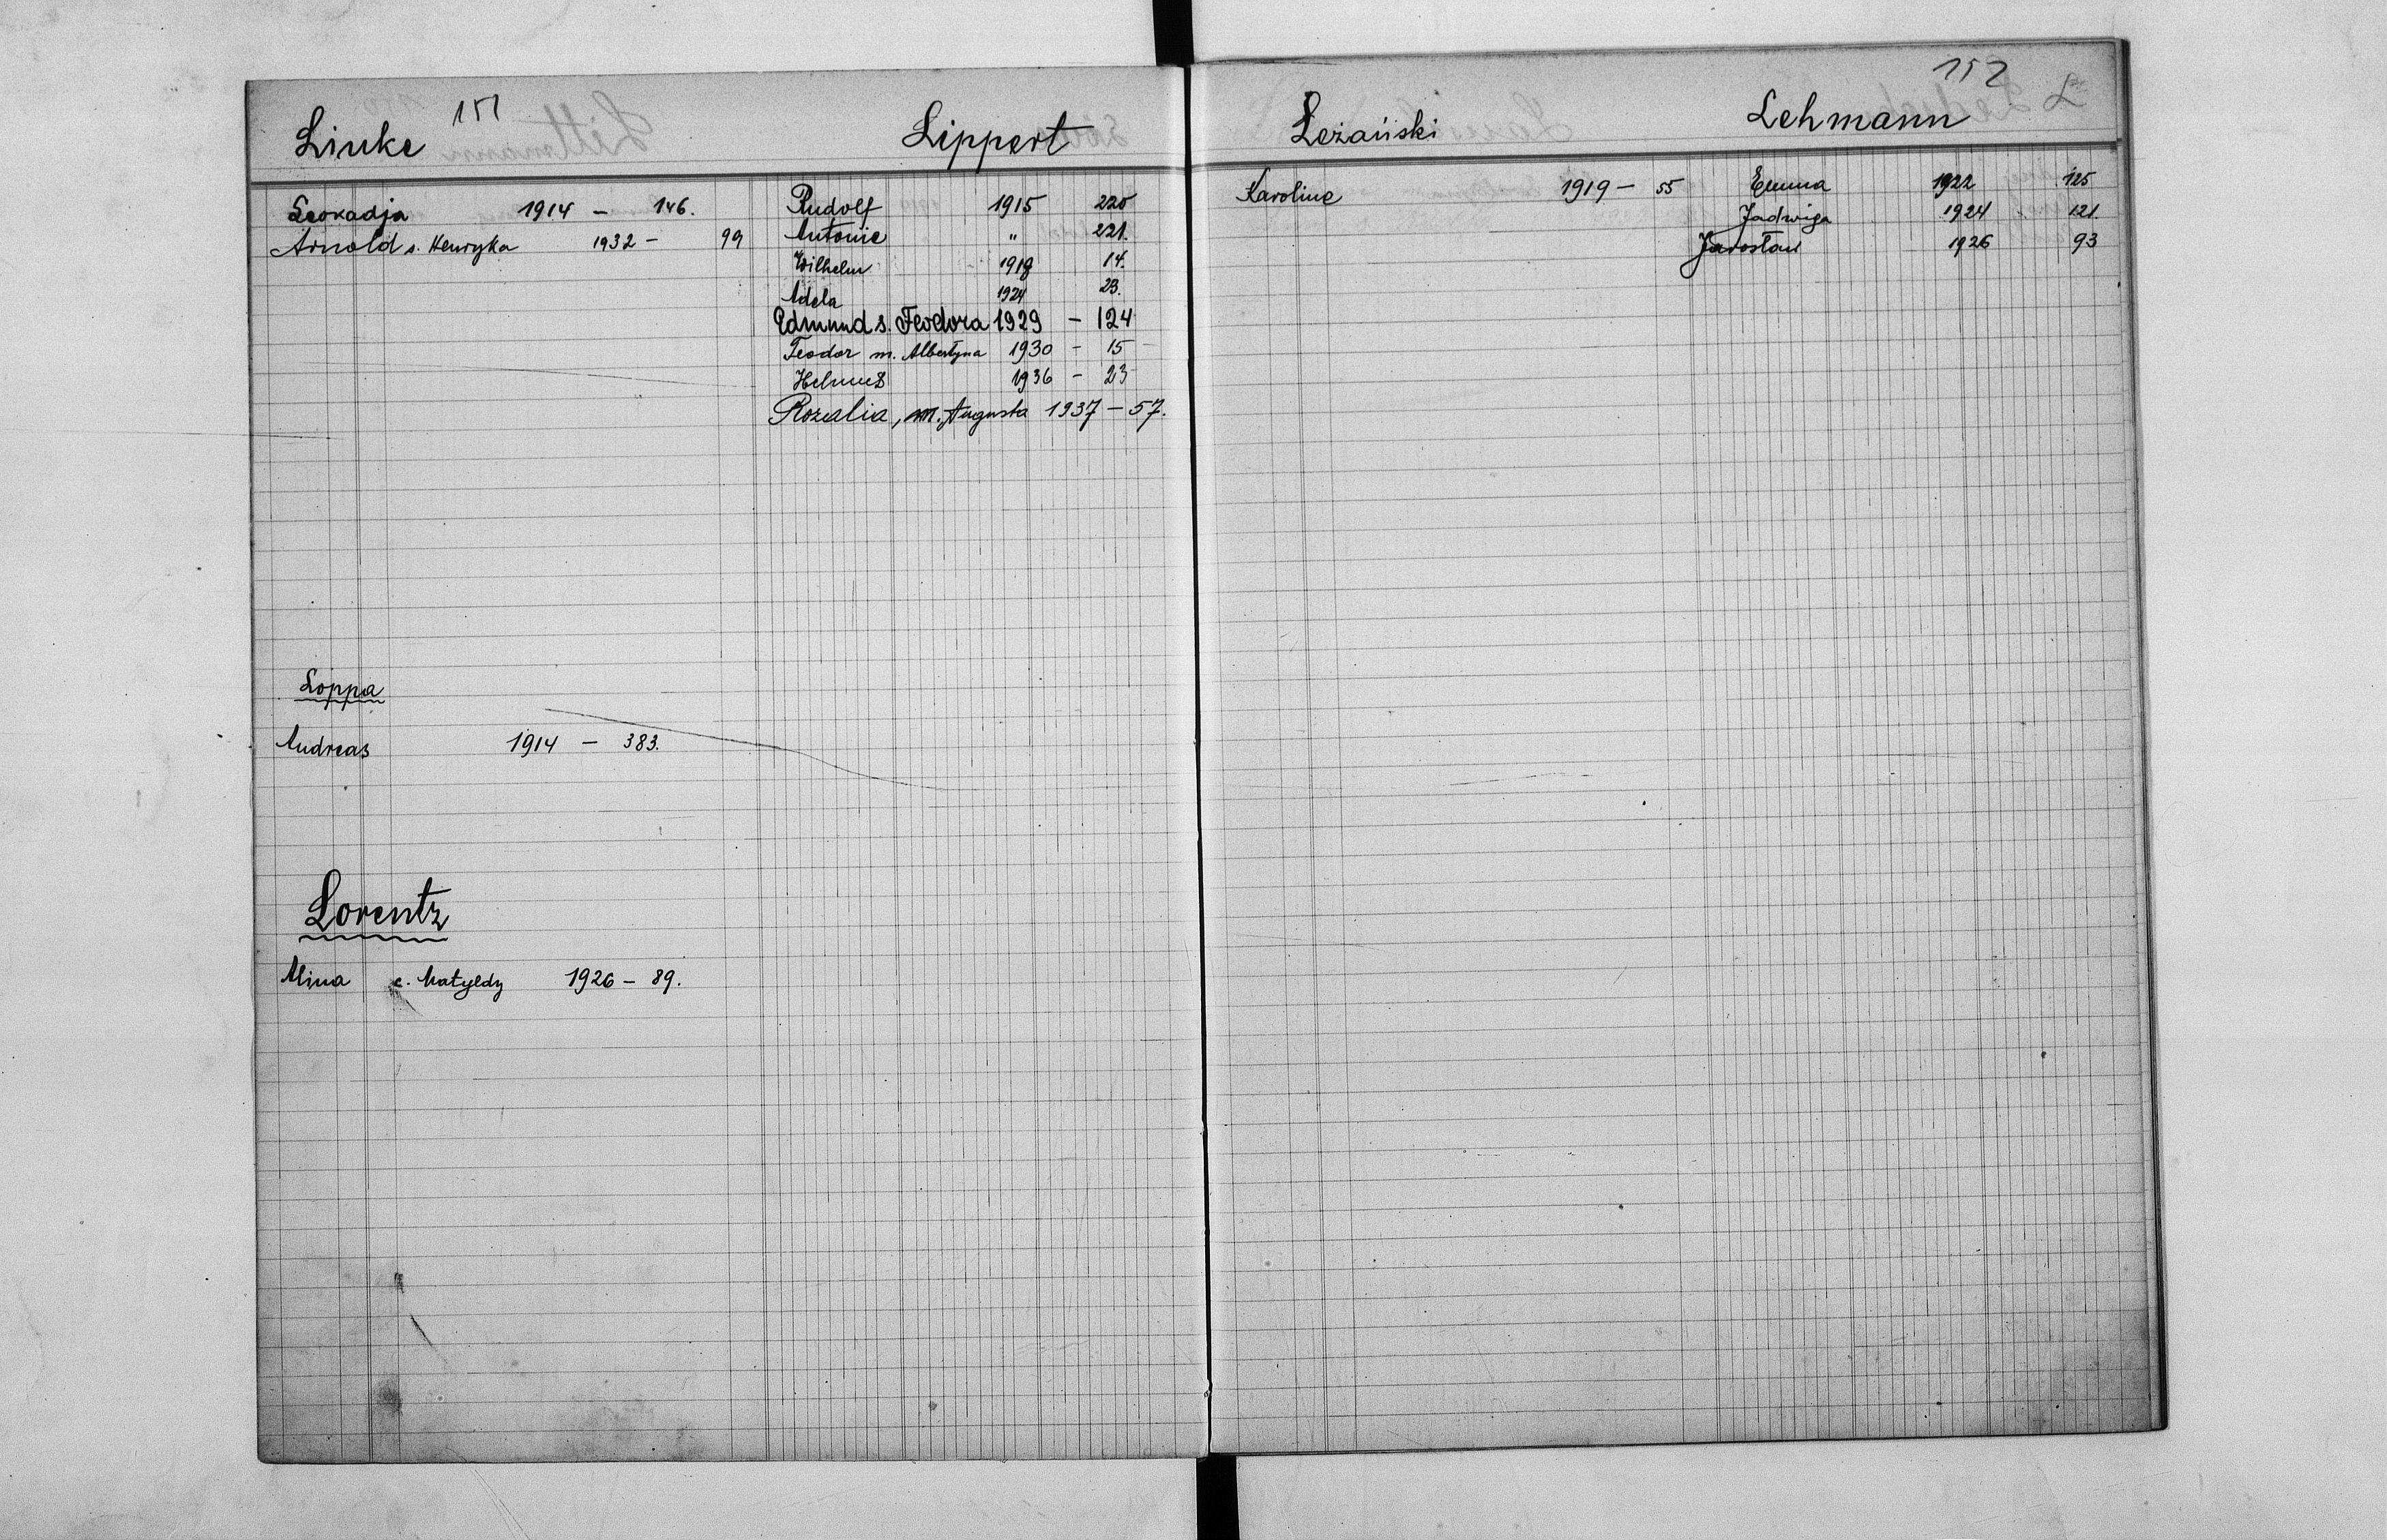 151
Linke
Leokadja 1914 - 146.
Arnold s. Henryka 1932 - 99
Loppa
Andreas 1914 - 383.
Lorentz
Alina c. Matyldy 1926 - 89.
Lippert
Rudolf 1915 220
Antonie " 221.
Wilhelm 1918 14.
Adela 1924 23.
Edmund s. Teodora 1929 - 124
Teodor m. Albertyna 1930 - 15
Helmut 1936 - 23
Rozalia, m. Augusta 1937 - 57.
152
L
Leżański
Karoline 1919 - 55
Lehmann
Emma 1922 125
Jadwiga 1924 121.
Jarosław 1926 93